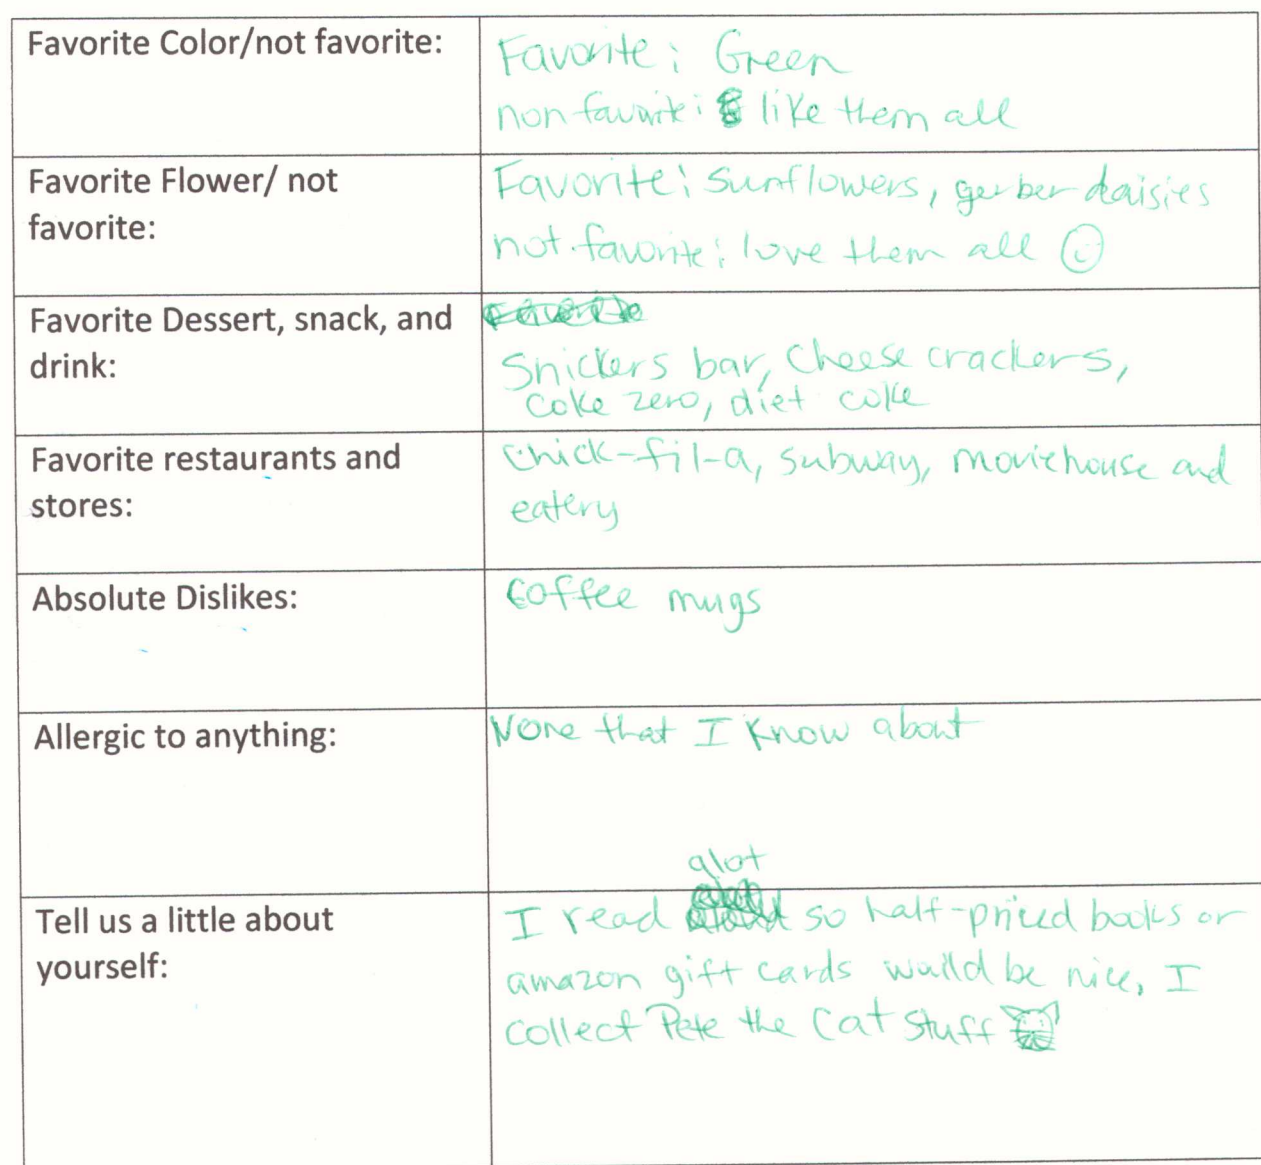 Favorite Color/not favorite:
Favorite: Green
non favorite: like them all
Favorite Flower/ not
favorite:
Favorite: sunflowers, gerber daisies
not favorite: love them all
Favorite Dessert, snack, and
drink:
Favorite
Snickers bar, cheese crackers,
coke zero, diet coke
Favorite restaurants and
stores:
chick-fil-a, subway, moviehouse and
eatery
Absolute Dislikes:
coffee mugs
Allergic to anything:
None that I know about
Tell us a little about
yourself:
alot
I read so half-priced books or
amazon gift cards would be nice, I
collect Pete the Cat stuff